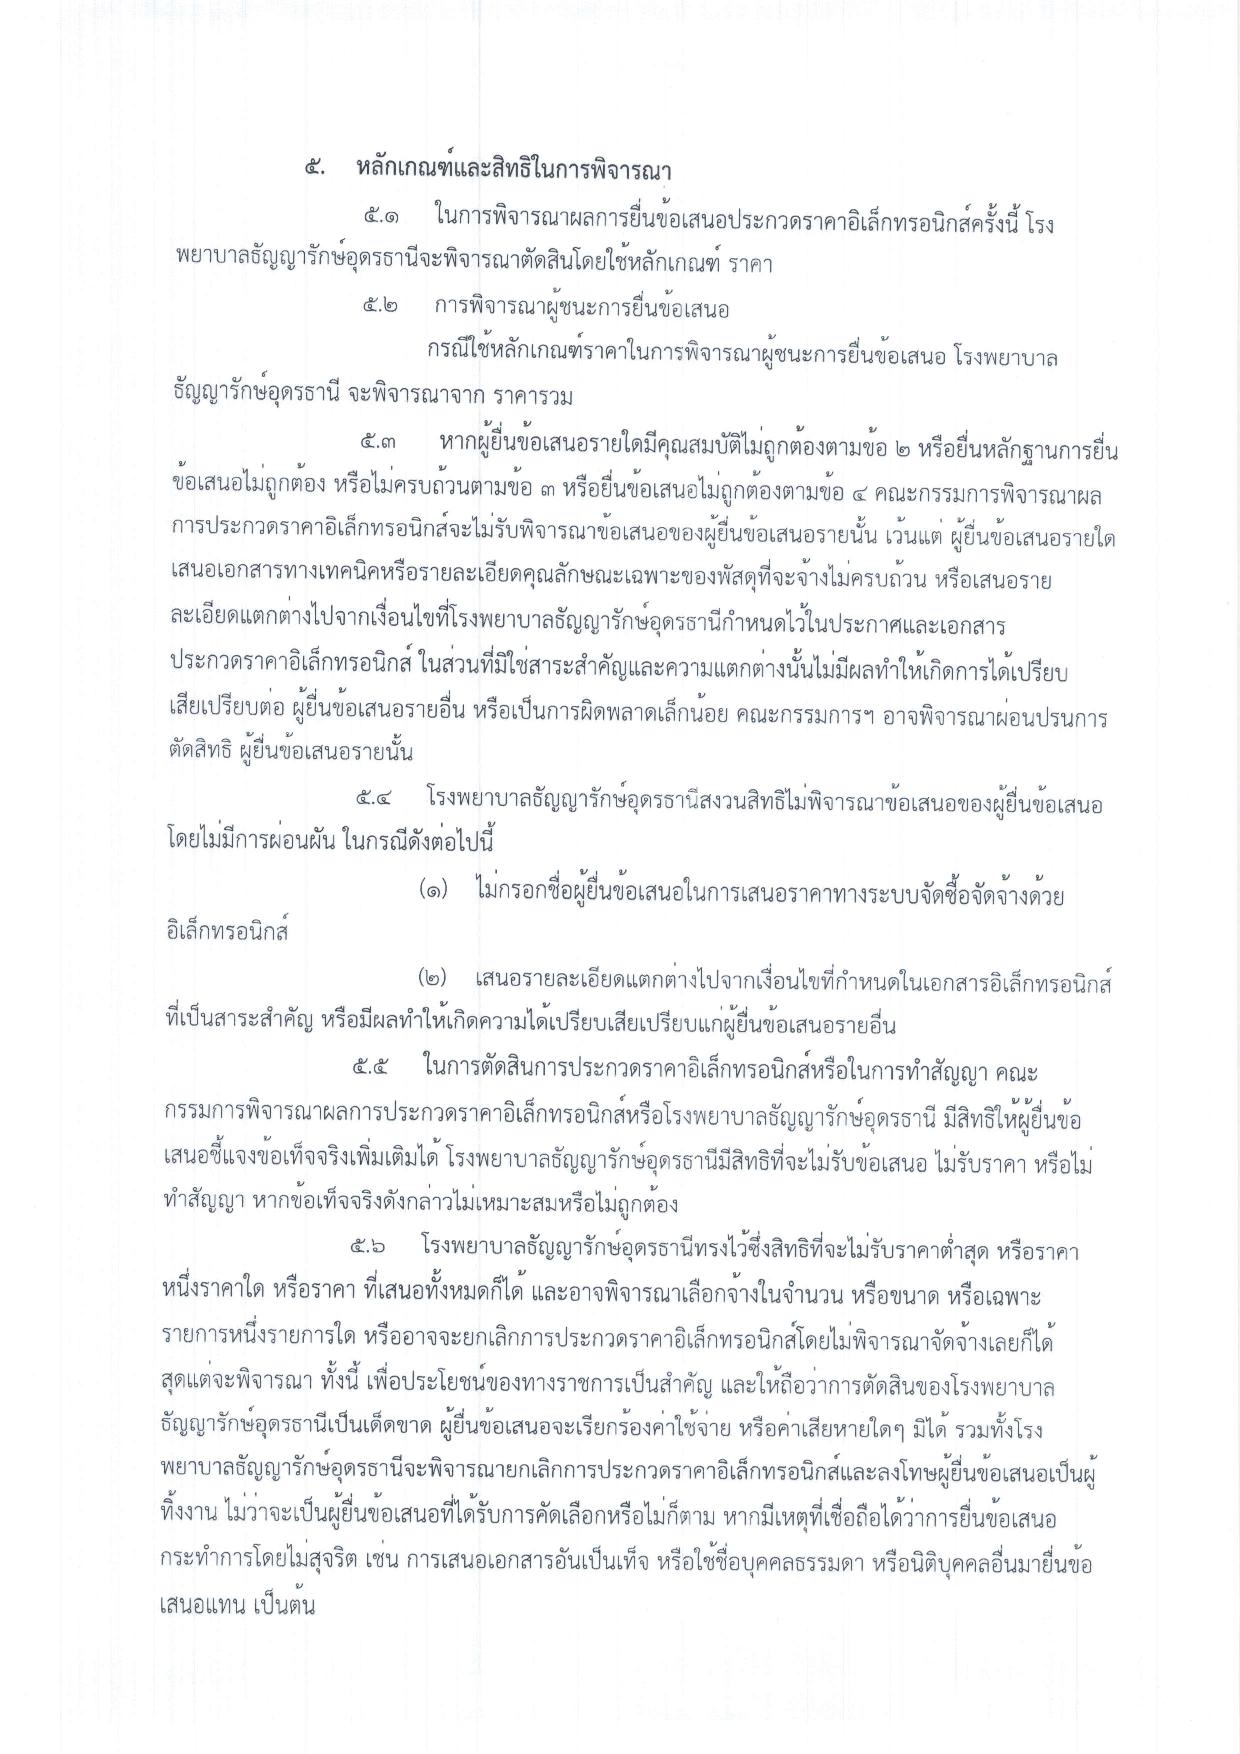 ๕. หลักเกณฑ์และสิทธิในการพิจารณา
๕.๑ ในการพิจารณาผลการยื่นข้อเสนอประกวดราคาอิเล็กทรอนิกส์ครั้งนี้ โรง
พยาบาลธัญญารักษ์อุดรธานีจะพิจารณาตัดสินโดยใช้หลักเกณฑ์ ราคา
๕.๒ การพิจารณาผู้ชนะการยื่นข้อเสนอ
กรณีใช้หลักเกณฑ์ราคาในการพิจารณาผู้ชนะการยื่นข้อเสนอ โรงพยาบาล
ธัญญารักษ์อุดรธานี จะพิจารณาจาก ราคารวม
๕.๓ หากผู้ยื่นข้อเสนอรายใดมีคุณสมบัติไม่ถูกต้องตามข้อ ๒ หรือยื่นหลักฐานการยื่น
ข้อเสนอไม่ถูกต้อง หรือไม่ครบถ้วนตามข้อ ๓ หรือยื่นข้อเสนอไม่ถูกต้องตามข้อ ๔ คณะกรรมการพิจารณาผล
การประกวดราคาอิเล็กทรอนิกส์จะไม่รับพิจารณาข้อเสนอของผู้ยื่นข้อเสนอรายนั้น เว้นแต่ ผู้ยื่นข้อเสนอรายใด
เสนอเอกสารทางเทคนิคหรือรายละเอียดคุณลักษณะเฉพาะของพัสดุที่จะจ้างไม่ครบถ้วน หรือเสนอราย
ละเอียดแตกต่างไปจากเงื่อนไขที่โรงพยาบาลธัญญารักษ์อุดรธานีกำหนดไว้ในประกาศและเอกสาร
ประกวดราคาอิเล็กทรอนิกส์ ในส่วนที่มิใช่สาระสำคัญและความแตกต่างนั้นไม่มีผลทำให้เกิดการได้เปรียบ
เสียเปรียบต่อ ผู้ยื่นข้อเสนอรายอื่น หรือเป็นการผิดพลาดเล็กน้อย คณะกรรมการฯ อาจพิจารณาผ่อนปรนการ
ตัดสิทธิ ผู้ยื่นข้อเสนอรายนั้น
๕.๔ โรงพยาบาลธัญญารักษ์อุดรธานีสงวนสิทธิไม่พิจารณาข้อเสนอของผู้ยื่นข้อเสนอ
โดยไม่มีการผ่อนผัน ในกรณีดังต่อไปนี้
(๑) ไม่กรอกชื่อผู้ยื่นข้อเสนอในการเสนอราคาทางระบบจัดซื้อจัดจ้างด้วย
อิเล็กทรอนิกส์
(๒) เสนอรายละเอียดแตกต่างไปจากเงื่อนไขที่กำหนดในเอกสารอิเล็กทรอนิกส์
ที่เป็นสาระสำคัญ หรือมีผลทำให้เกิดความได้เปรียบเสียเปรียบแก่ผู้ยื่นข้อเสนอรายอื่น
๕.๕ ในการตัดสินการประกวดราคาอิเล็กทรอนิกส์หรือในการทำสัญญา คณะ
กรรมการพิจารณาผลการประกวดราคาอิเล็กทรอนิกส์หรือโรงพยาบาลธัญญารักษ์อุดรธานี มีสิทธิให้ผู้ยื่นข้อ
เสนอชี้แจงข้อเท็จจริงเพิ่มเติมได้ โรงพยาบาลธัญญารักษ์อุดรธานีมีสิทธิที่จะไม่รับข้อเสนอ ไม่รับราคา หรือไม่
ทำสัญญา หากข้อเท็จจริงดังกล่าวไม่เหมาะสมหรือไม่ถูกต้อง
๕.๖ โรงพยาบาลธัญญารักษ์อุดรธานีทรงไว้ซึ่งสิทธิที่จะไม่รับราคาต่ำสุด หรือราคา
หนึ่งราคาใด หรือราคา ที่เสนอทั้งหมดก็ได้ และอาจพิจารณาเลือกจ้างในจำนวน หรือขนาด หรือเฉพาะ
รายการหนึ่งรายการใด หรืออาจจะยกเลิกการประกวดราคาอิเล็กทรอนิกส์โดยไม่พิจารณาจัดจ้างเลยก็ได้
สุดแต่จะพิจารณา ทั้งนี้ เพื่อประโยชน์ของทางราชการเป็นสำคัญ และให้ถือว่าการตัดสินของโรงพยาบาล
ธัญญารักษ์อุดรธานีเป็นเด็ดขาด ผู้ยื่นข้อเสนอจะเรียกร้องค่าใช้จ่าย หรือค่าเสียหายใดๆ มิได้ รวมทั้งโรง
พยาบาลธัญญารักษ์อุดรธานีจะพิจารณายกเลิกการประกวดราคาอิเล็กทรอนิกส์และลงโทษผู้ยื่นข้อเสนอเป็นผู้
ทิ้งงาน ไม่ว่าจะเป็นผู้ยื่นข้อเสนอที่ได้รับการคัดเลือกหรือไม่ก็ตาม หากมีเหตุที่เชื่อถือได้ว่าการยื่นข้อเสนอ
กระทำการโดยไม่สุจริต เช่น การเสนอเอกสารอันเป็นเท็จ หรือใช้ชื่อบุคคลธรรมดา หรือนิติบุคคลอื่นมายื่นข้อ
เสนอแทน เป็นต้น